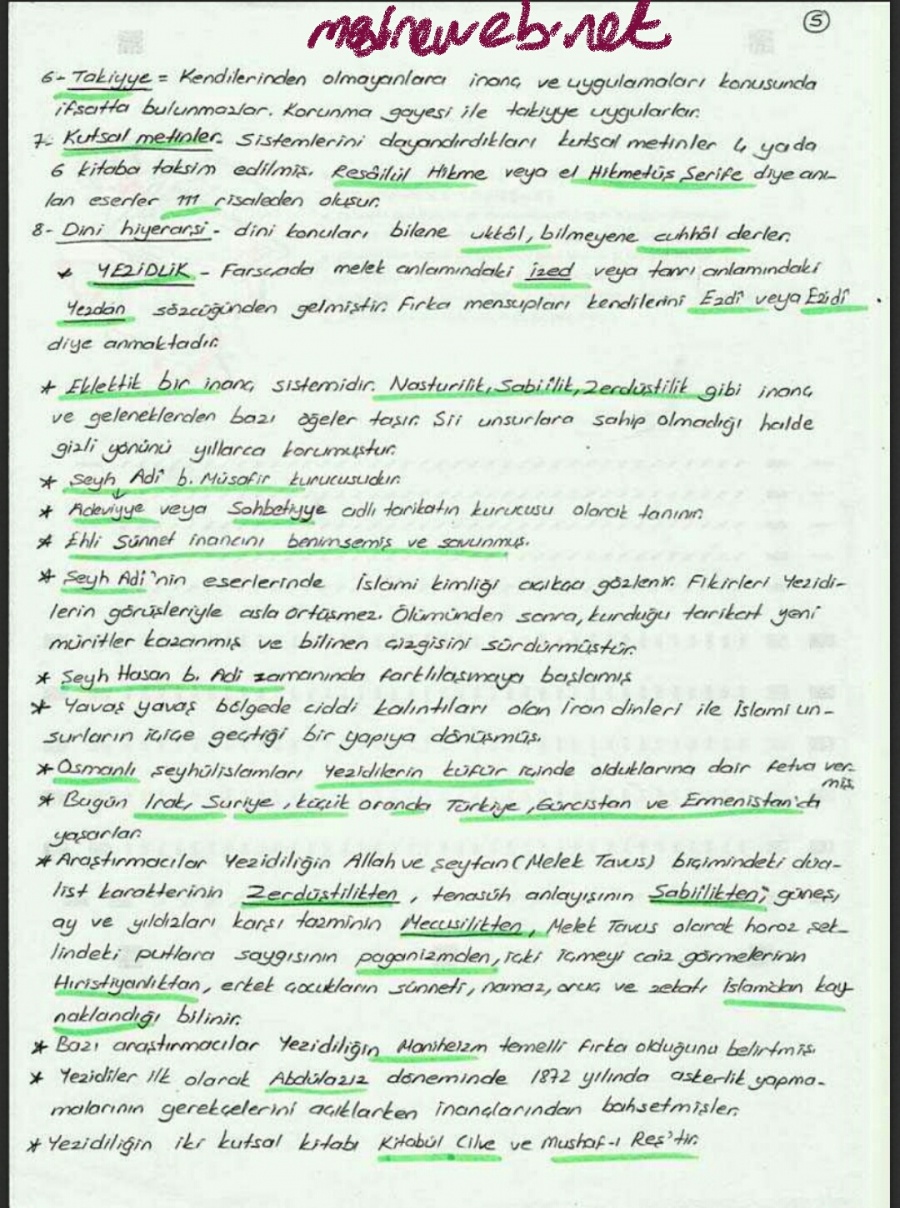 medrewebi.net
5
6- Takiyye = Kendilerinden olmayanlara inanç ve uygulamaları konusunda
ifşatta bulunmazlar. Korunma gayesi ile takiyye uygularlar.
7- Kutsal metinler. Sistemlerini dayandırdıkları kutsal metinler 4 yada
6 kitaba taksim edilmiş. Resâilül Hikme veya el Hikmetüş Şerife diye anı-
lan eserler 111 risaleden oluşur.
8- Dini hiyerarşi - dini konuları bilene ukkâl, bilmeyene cuhhâl derler.
* YEZİDLİK - Farsçada melek anlamındaki ized veya tanrı anlamındaki
Yezdan sözcüğünden gelmiştir. Fırka mensupları kendilerini Ezdî veya Ezidî
diye anmaktadır.
* Eklektik bir inanç sistemidir. Nasturilik, Sabiîlik, Zerdüştilik gibi inanç
ve geleneklerden bazı öğeler taşır. Şii unsurlara sahip olmadığı halde
gizli yönünü yıllarca korumuştur.
* Şeyh Adî b. Müsafir kurucusudur.
* Adeviyye veya Sohbetiyye adlı tarikatın kurucusu olarak tanınır.
* Ehli Sünnet inancını benimsemiş ve savunmuş.
* Şeyh Adi'nin eserlerinde İslami kimliği açıkça gözlenir. Fikirleri Yezidi-
lerin görüşleriyle asla örtüşmez. Ölümünden sonra, kurduğu tarikat yeni
müritler kazanmış ve bilinen çizgisini sürdürmüştür.
* Şeyh Hasan b. Adi zamanında farklılaşmaya başlamış
* Yavaş yavaş bölgede ciddi kalıntıları olan İran dinleri ile İslami un-
surların içiçe geçtiği bir yapıya dönüşmüş.
* Osmanlı şeyhülislamları Yezidilerin küfür içinde olduklarına dair fetva ver-
miş.
* Bugün Irak, Suriye, küçük oranda Türkiye, Gürcistan ve Ermenistan'da
yaşarlar.
* Araştırmacılar Yezidiliğin Allah ve şeytan (Melek Tavus) biçimindeki dua-
list karakterinin Zerdüştilikten, tenasüh anlayışının Sabiîlikten, güneş,
ay ve yıldızları karşı tazminin Mecusilikten, Melek Tavus olarak horoz şek-
lindeki putlara saygısının paganizmden, içki içmeyi caiz görmelerinin
Hıristiyanlıktan, erkek çocukların sünneti, namaz, oruç ve zekatı İslamdan kay-
naklandığı bilinir.
* Bazı araştırmacılar Yezidiliğin Maniheizm temelli fırka olduğunu belirtmiş
* Yezidiler ilk olarak Abdülaziz döneminde 1872 yılında askerlik yapma-
malarının gerekçelerini açıklarken inançlarından bahsetmişler.
* Yezidiliğin iki kutsal kitabı Kitabül Cilve ve Mushaf-ı Reş'tir.